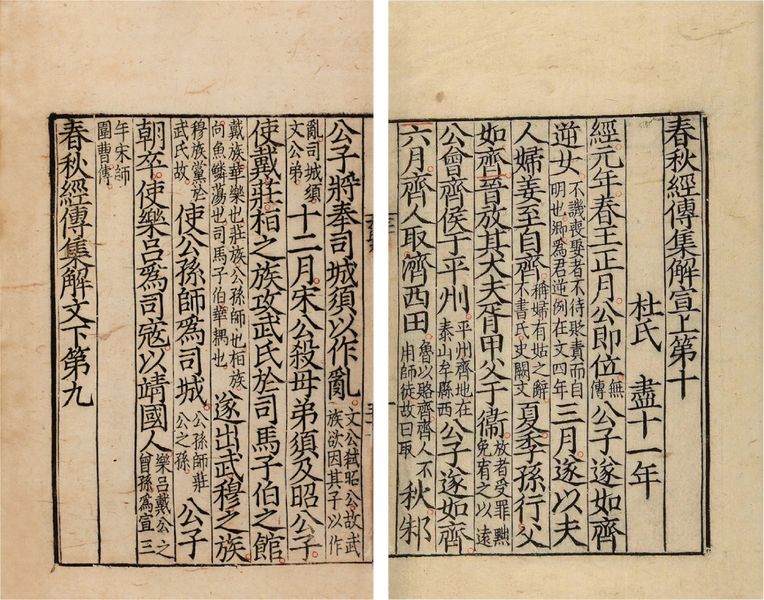 春秋經傳集解宣上第十
杜氏 盡十一年
經元年春王正月公即位無傳公子遂如齊
逆女不譏喪娶者不待貶責而自明也卿爲君逆例在文四年三月遂以夫
人婦姜至自齊稱婦有姑之辭不書氏史闕文夏季孫行父
如齊晉放其大夫胥甲父于衞放者受罪黜免宥之以遠
公會齊侯于平州平州齊地在泰山牟縣西公子遂如齊
六月齊人取濟西田魯以賂齊齊人不用師徒故曰取秋邾
公子將奉司城須以作亂文公弑昭公故武族欲因其子以作
亂司城須文公弟十二月宋公殺母弟須及昭公子
使戴莊桓之族攻武氏於司馬子伯之館
戴族華樂也莊族公孫師也桓族向魚鱗蕩也司馬子伯華耦也遂出武穆之族
穆族黨於武氏故使公孫師爲司城公孫師莊公之孫公子
朝卒使樂呂爲司寇以靖國人樂呂戴公之曾孫爲宣三
年宋師圍曹傳
春秋經傳集解文下第九